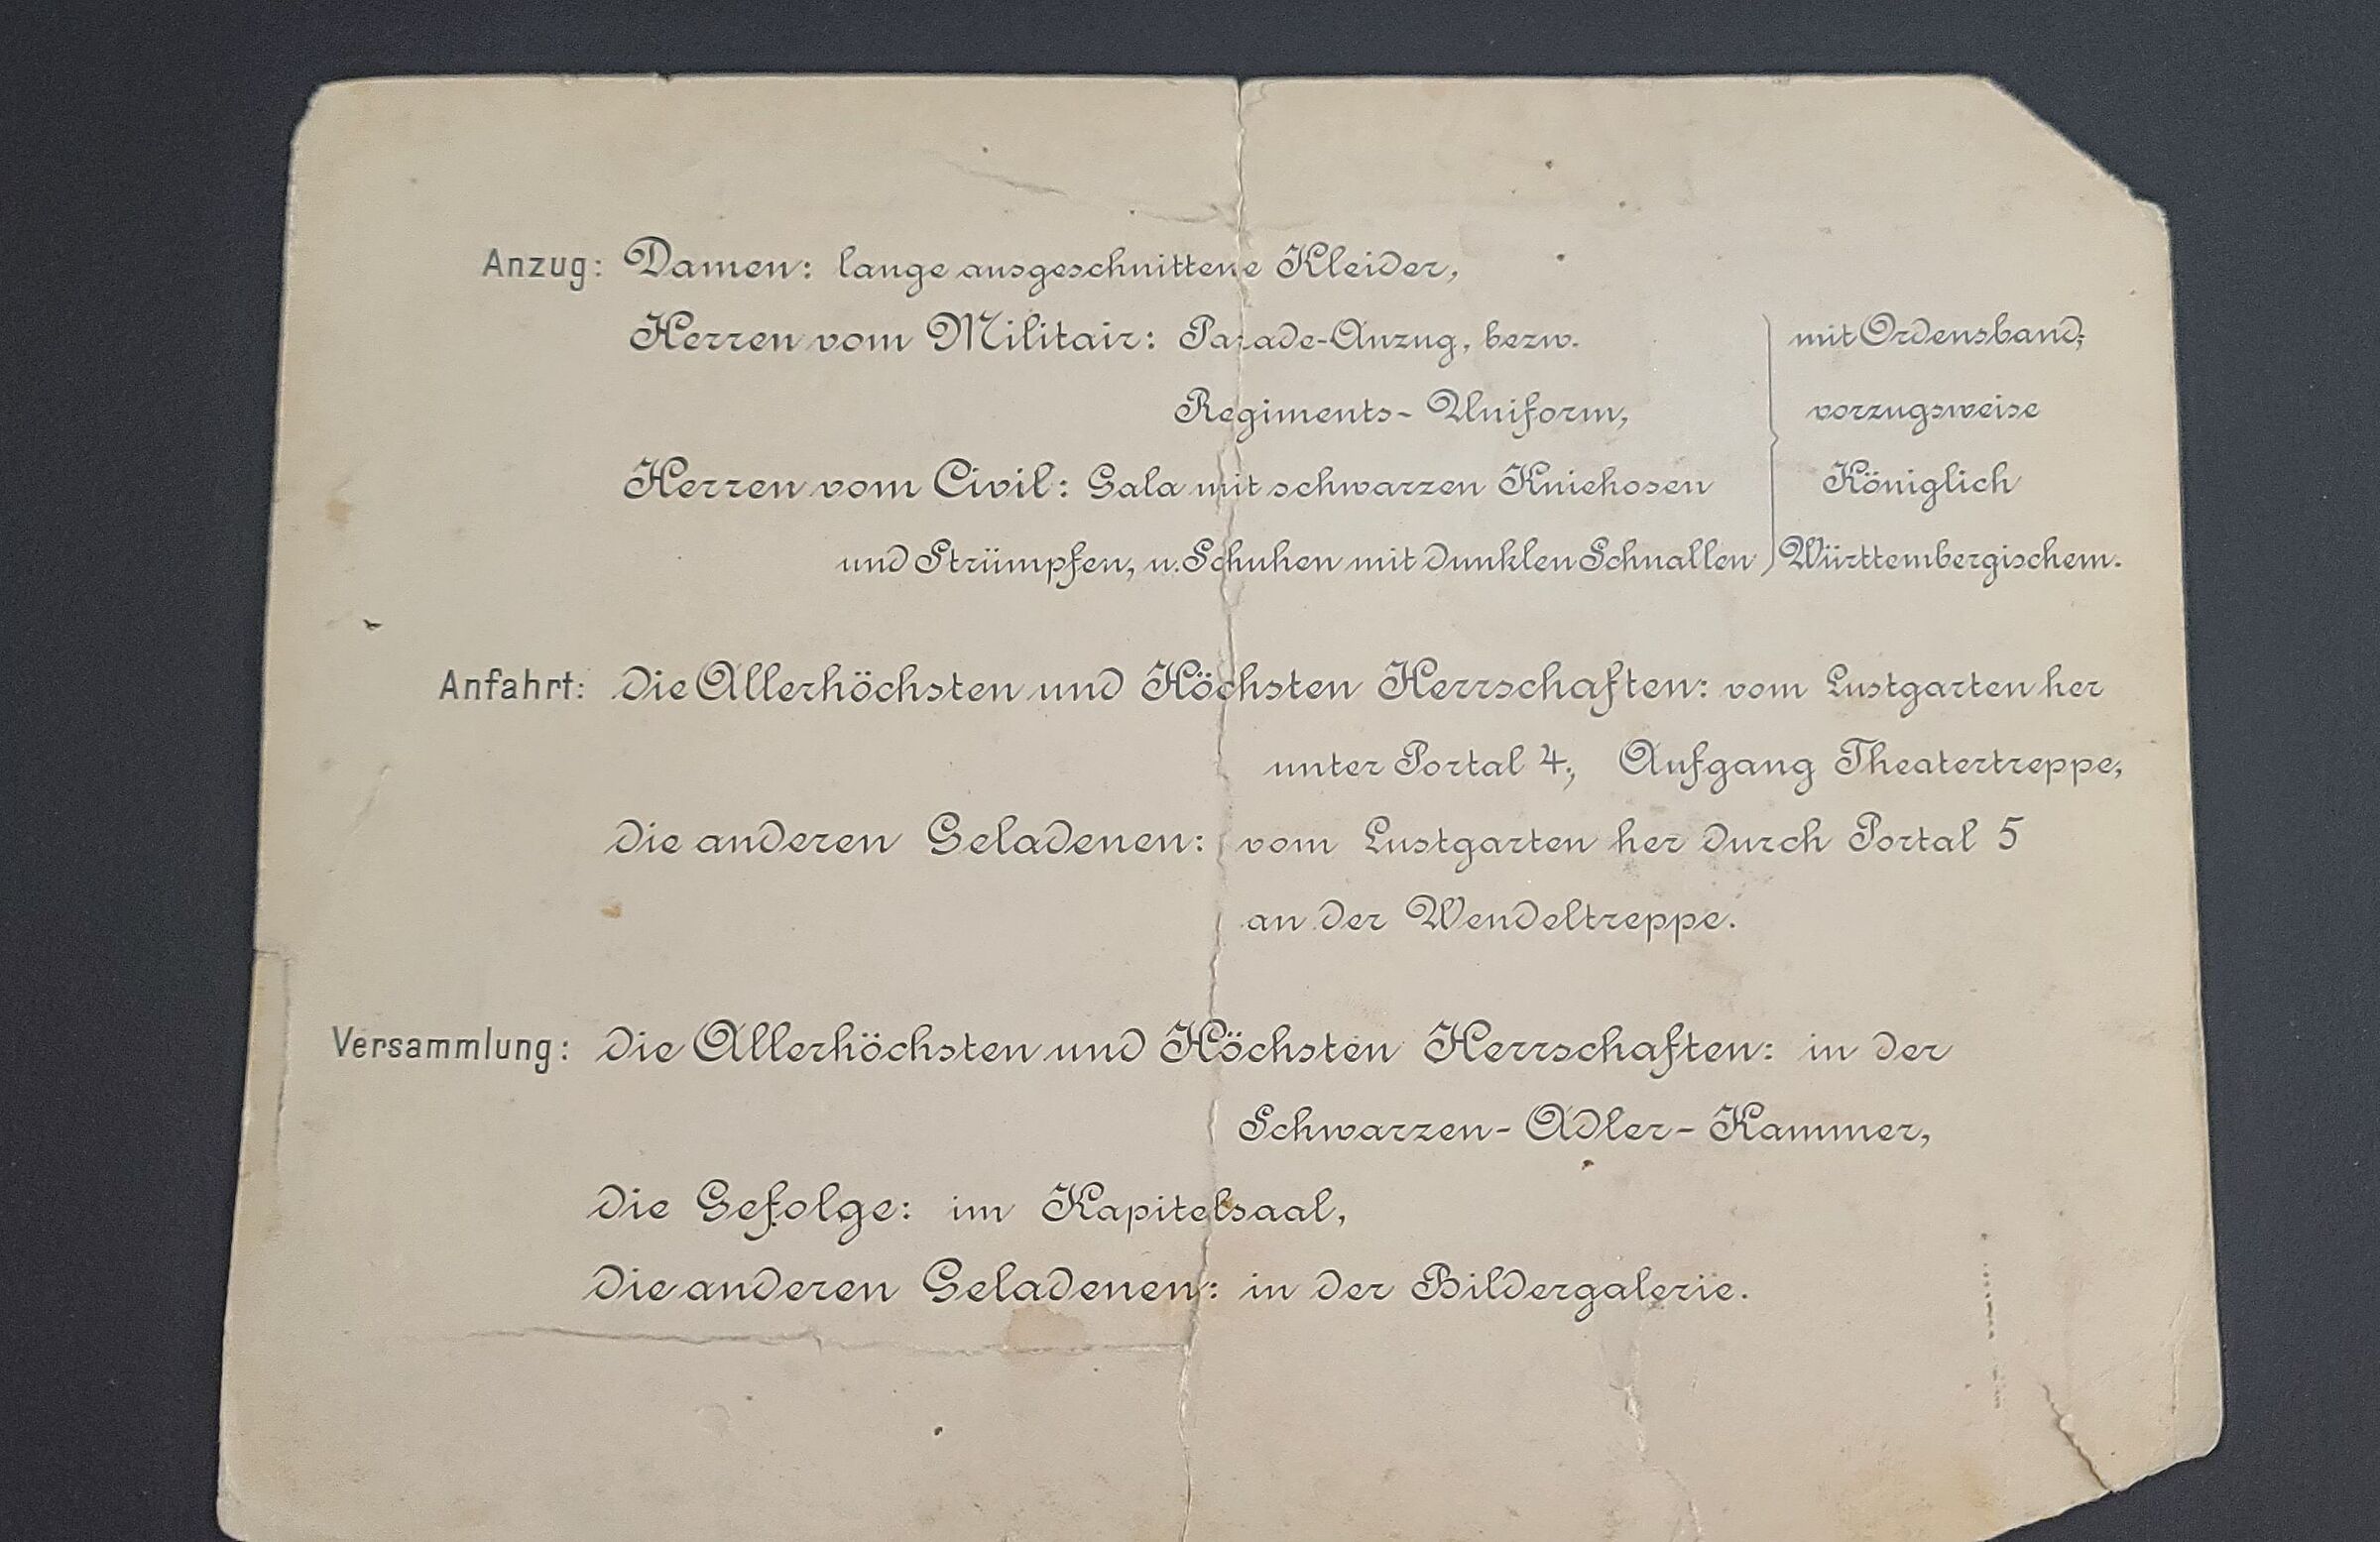 Anzug: Damen: lange ausgeschnittene Kleider,
Herren vom Militair: Parade-Anzug, bezw. mit Ordensband;
Regiments- Uniform, vorzugsweise
Herren vom Civil: Gala mit schwarzen Kniehosen Königlich
und Strümpfen, u. Schuhen mit dunklen Schnallen Württembergischem.
Anfahrt: die Allerhöchsten und Höchsten Herrschaften: vom Lustgarten her
unter Portal 4; Aufgang Theatertreppe,
die anderen Geladenen: vom Lustgarten her durch Portal 5
an der Wendeltreppe.
Versammlung: die Allerhöchsten und Höchsten Herrschaften: in der
Schwarzen-Adler-Kammer,
die Gefolge: im Kapitelsaal,
die anderen Geladenen: in der Bildergalerie.